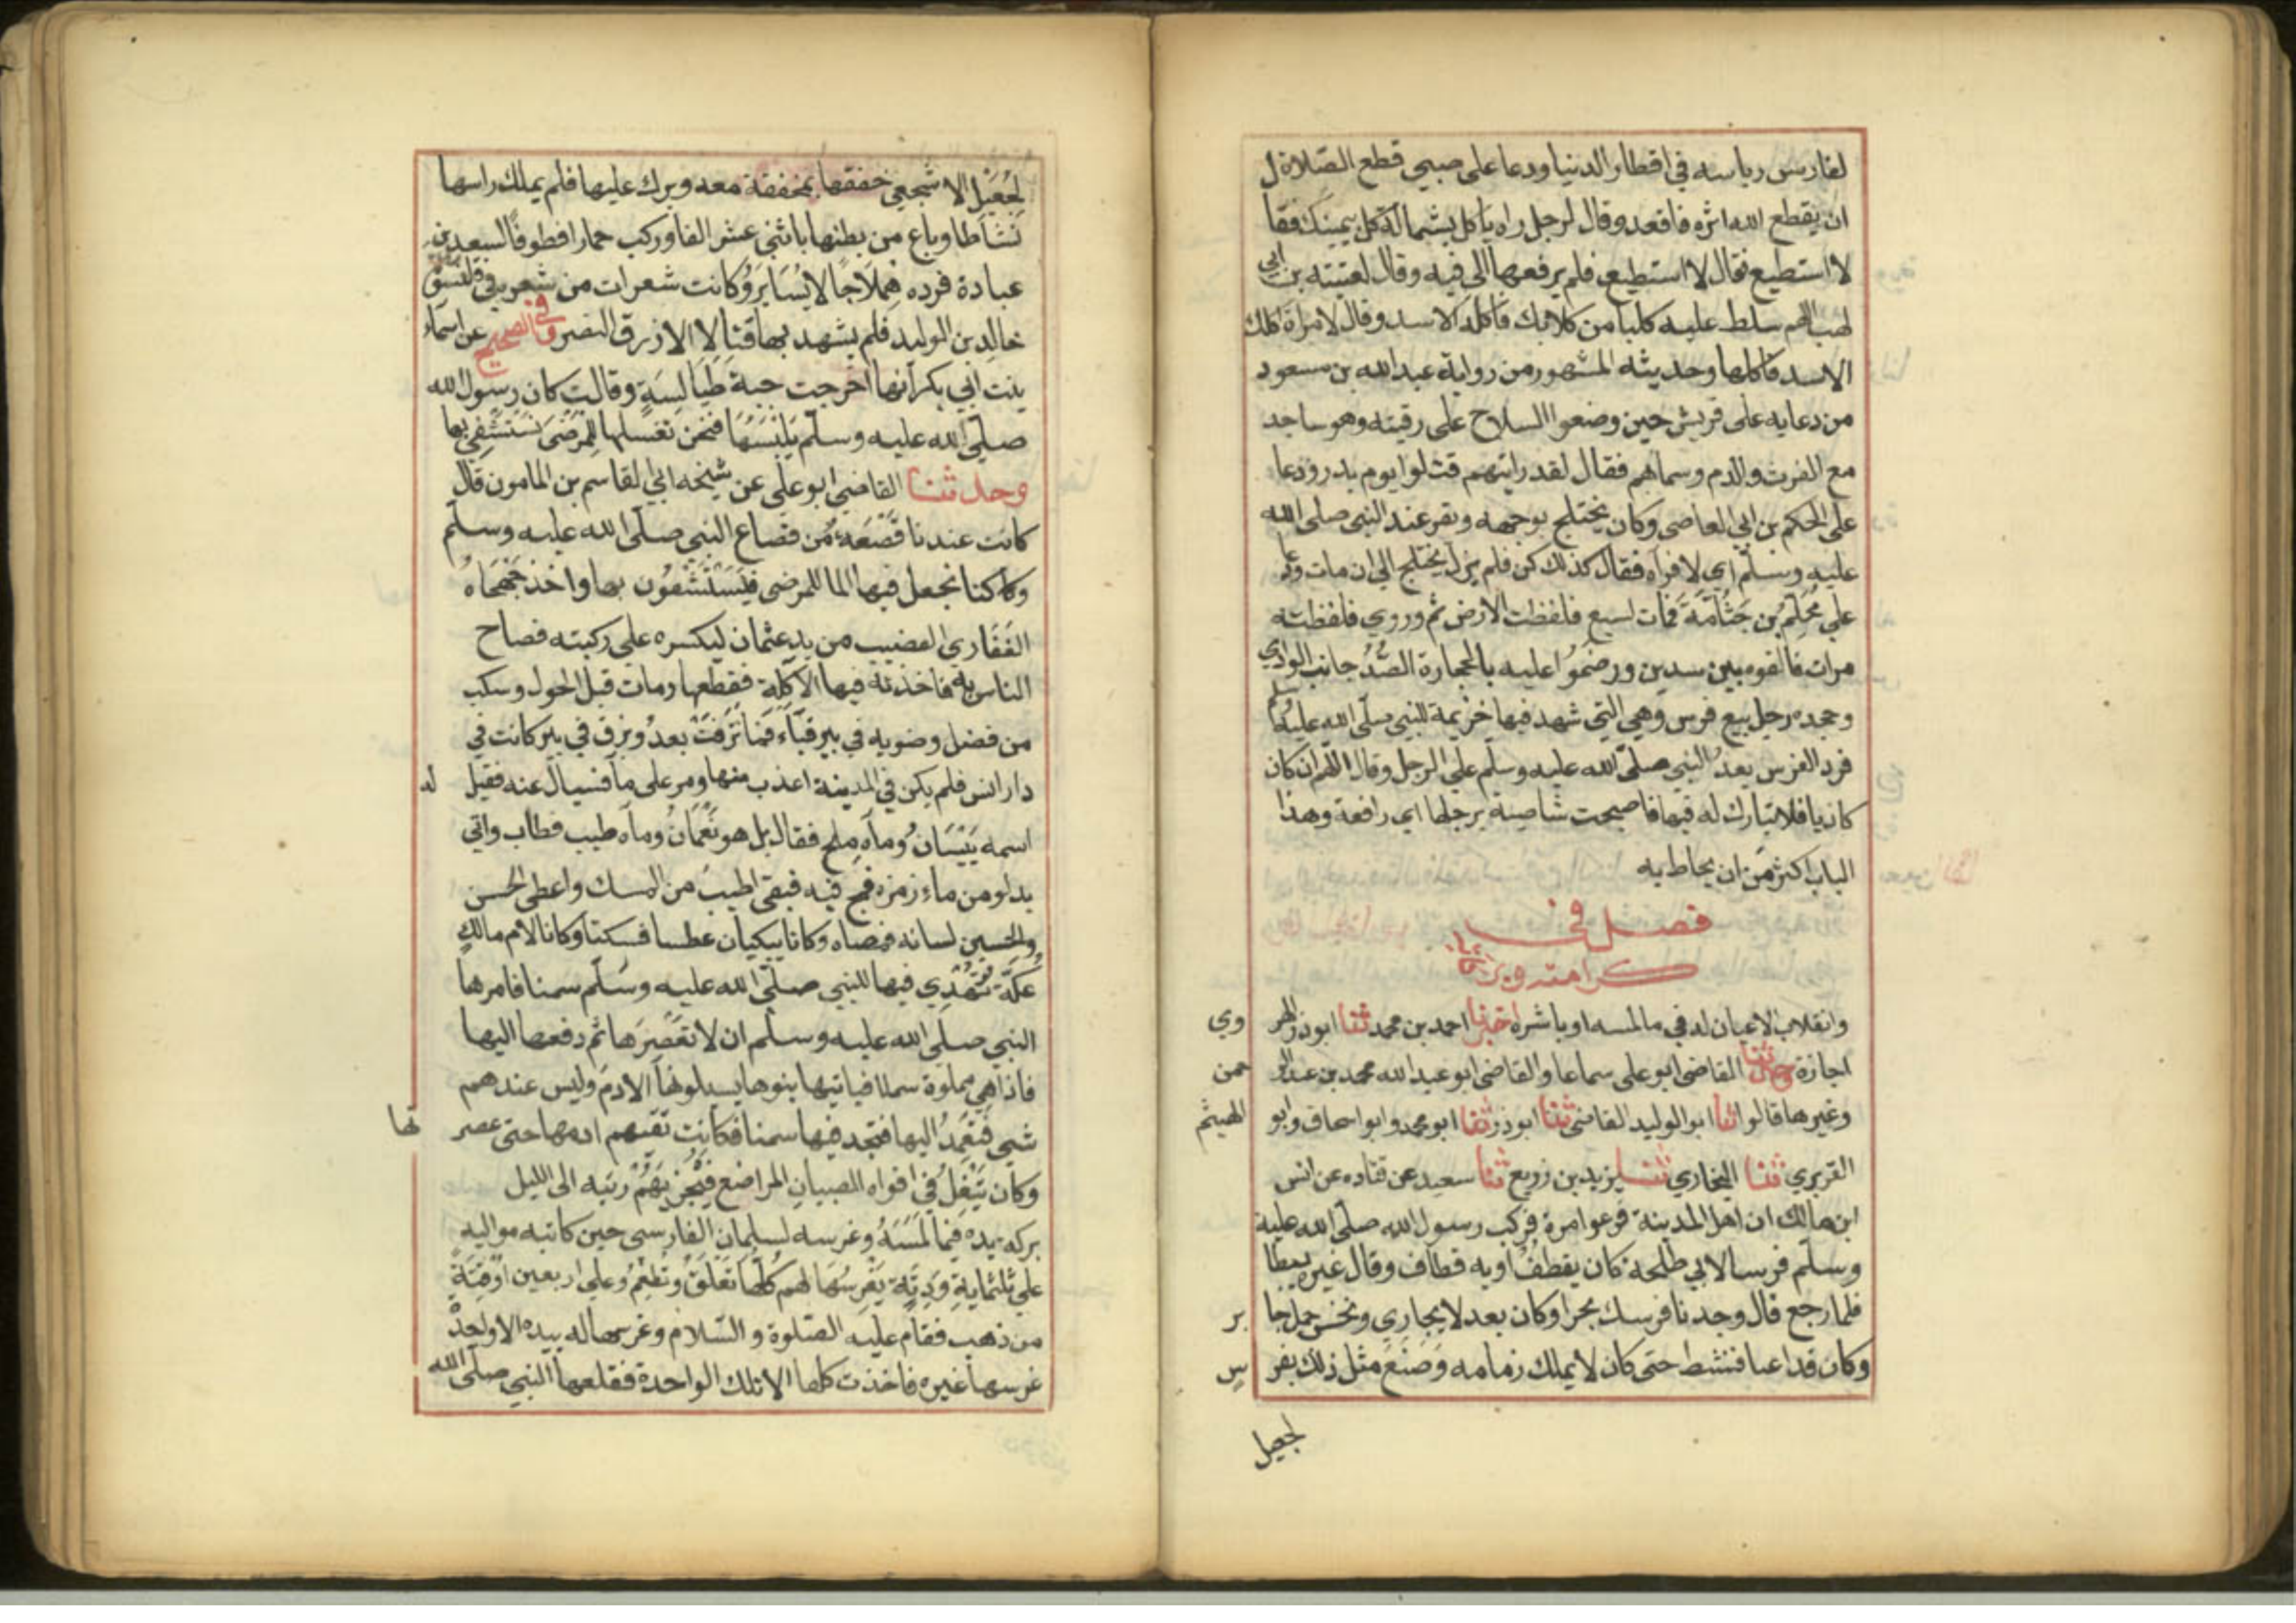 لفارس رياسه في اقطار الدنيا ودعا على صبي قطع الصّلاة ل
ان يقطع الله اثره فاقعد وقال لرجل راه ياكل بشماله كل بيمينك فقا
لا استطيع فقال لا استطيع فلم يرفعها الى فيه وقال لعتيبه بن ابي
لهب اللهم سلط عليه كلبا من كلابك فاكله الاسد وقال لامراة اكلك
الاسد فاكلها وحديثه المشهور من رواية عبد الله بن مسعود
من دعايه على قريش حين وضعوا السلاح على رقبته وهو ساجد
مع الفرث والدم وسماهم فقال لقد رايتهم قتلوا يوم بدر ودعا
على الحكم بن ابي العاصي وكان يختلج بوجهه ويغمز عند النبي صلى الله
عليه وسلّم اي لا فراه فقال كذلك كن فلم يزل يختلج الى ان مات ودعا
على مُحَلِّم بن جَثَّامَةَ فمات لسبع فلفظته الارض ثم ووري فلفظته
مرات فالقوه بين سدين ورضموا عليه بالحجارة الصُّدُّ جانب الوادي
وجحده رجل بيع فرس وهي التي شهد فيها خزيمة للنبي صلّى الله عليه وسلم
فرد الفرس بعدُ النبي صلّى الله عليه وسلم على الرجل وقال اللهم ان كان
كاذبا فلا تبارك له فيها فاصبحت شاصية برجلها اي رافعة وهذا
الباب اكثر من ان يحاط به
فصل في
كراماته وبركاته
وانقلاب الاعيان له في ما لمسه او باشره اخبرنا احمد بن محمد ثنا ابو ذر الهر وي
اجازة وحدثنا القاضي ابو علي سماعا والقاضي ابو عبد الله محمد بن عبد الر حمن
وغيرهما قالوا ثنا ابو الوليد القاضي ثنا ابو ذر ثنا ابو محمد وابو اسحاق وابو الهيثم
الفربري ثنا البخاري ثنا يزيد بن زريع ثنا سعيد عن قتاده عن انس
ابن مالك ان اهل المدينة فزعوا مرة فركب رسول الله صلّى الله عليه
وسلّم فرسا لابي طلحة كان يقطف او به قطاف وقال غيره يبطا
فلما رجع قال وجدنا فرسك بحرا وكان بعد لا يجاري ونخس جمل جا بر
وكان قد اعيا فنشط حتى كان لا يملك زمامه وَصَنَعَ مثل ذلك بفر س
لجعيل
لِجُعَيْل الاشجعي خفقها بمخفقة معه وبرك عليها فلم يملك راسها
نَشَاطا وباع من بطنها باثني عشر الفا وركب حمارا قطوفا لسعد بن
عبادة فرده هِمْلَاجًا لا يُسَايَرُ وكانت شعرات من شعره في قلنسوة
خالد بن الوليد فلم يشهد بها قتالا الا رزق النصر وفي الصحيح عن اسماء
بنت ابي بكر انها اخرجت جبة طَيَالِسَةٍ وقالت كان رسول الله
صلّى الله عليه وسلّم يَلْبَسُهَا فنحن نغسلها للمرضى نستشفي بها
وحدثنا القاضي ابو علي عن شيخه ابي القاسم بن المامون قال
كانت عندنا قَصْعَة من قصاع النبي صلّى الله عليه وسلّم
وكنا نجعل فيها الما للمرضى فيَسْتَشْفُون بها واخذ جَهْجَاهُ
الغفاري القضيب من يد عثمان ليكسره على ركبته فصاح
الناس به فاخذته فيها الآكلة فقطعها ومات قبل الحول وسكب
من فضل وضويه في بير قباء فما نَزَفَتْ بعدُ وبزق في بير كانت في
دار انس فلم يكن في المدينة اعذب منها ومر على ما فسيال عنه فقيل له
اسمه بَيْسَان وماه ملح فقال بل هو نعمان وماه طيب فطاب واتي
بدلو من ماء زمزم فمج فيه فبقى اطيب من المسك واعطى الحسن
والحسين لسانه فمصاه وكانا يبكيان عطشا فسكتا وكان لام مالك
عُكَّة تُهْدِي فيها للنبي صلّى الله عليه وسلّم سمنا فامرها
النبي صلّى الله عليه وسلم ان لا تعصِرَها ثم دفعها اليها
فاذا هي مملوة سمنا فياتيها بنوها يسيلونها الادم وليس عندهم
شي فتعمد اليها فتجد فيها سمنا فكانت تقيم ادمها حتى عصر تها
وكان يَتْفِلُ في افواه الصبيان المراضع فيُجْزِيهُمْ ريقه الى الليل
بركه يده فيما لَمَسَهُ وغرسه لسلمان الفارسي حين كاتبه مواليه
على ثلثماية وَدِيَّة يَغْرِسُهَا لهم كُلُّهَا تَعْلَقُ وتُطْعِمُ وعلى اربعين اوقِيَّةً
من ذهب فقام عليه الصّلوة والسّلام وغرسها له بيده الا واحدةً
غرسها غيره فاخذت كلها الا تلك الواحدة فقلعها النبي صلّى الله